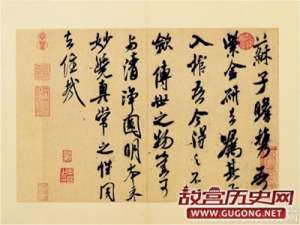 蘇子瞻携吾
紫金研去嘱其子
入棺吾今得之不以
歛傳世之物豈可
与清淨圓明本来
妙覺真常之性同
去住哉
故宫历史网
WWW.GUGONG.NET